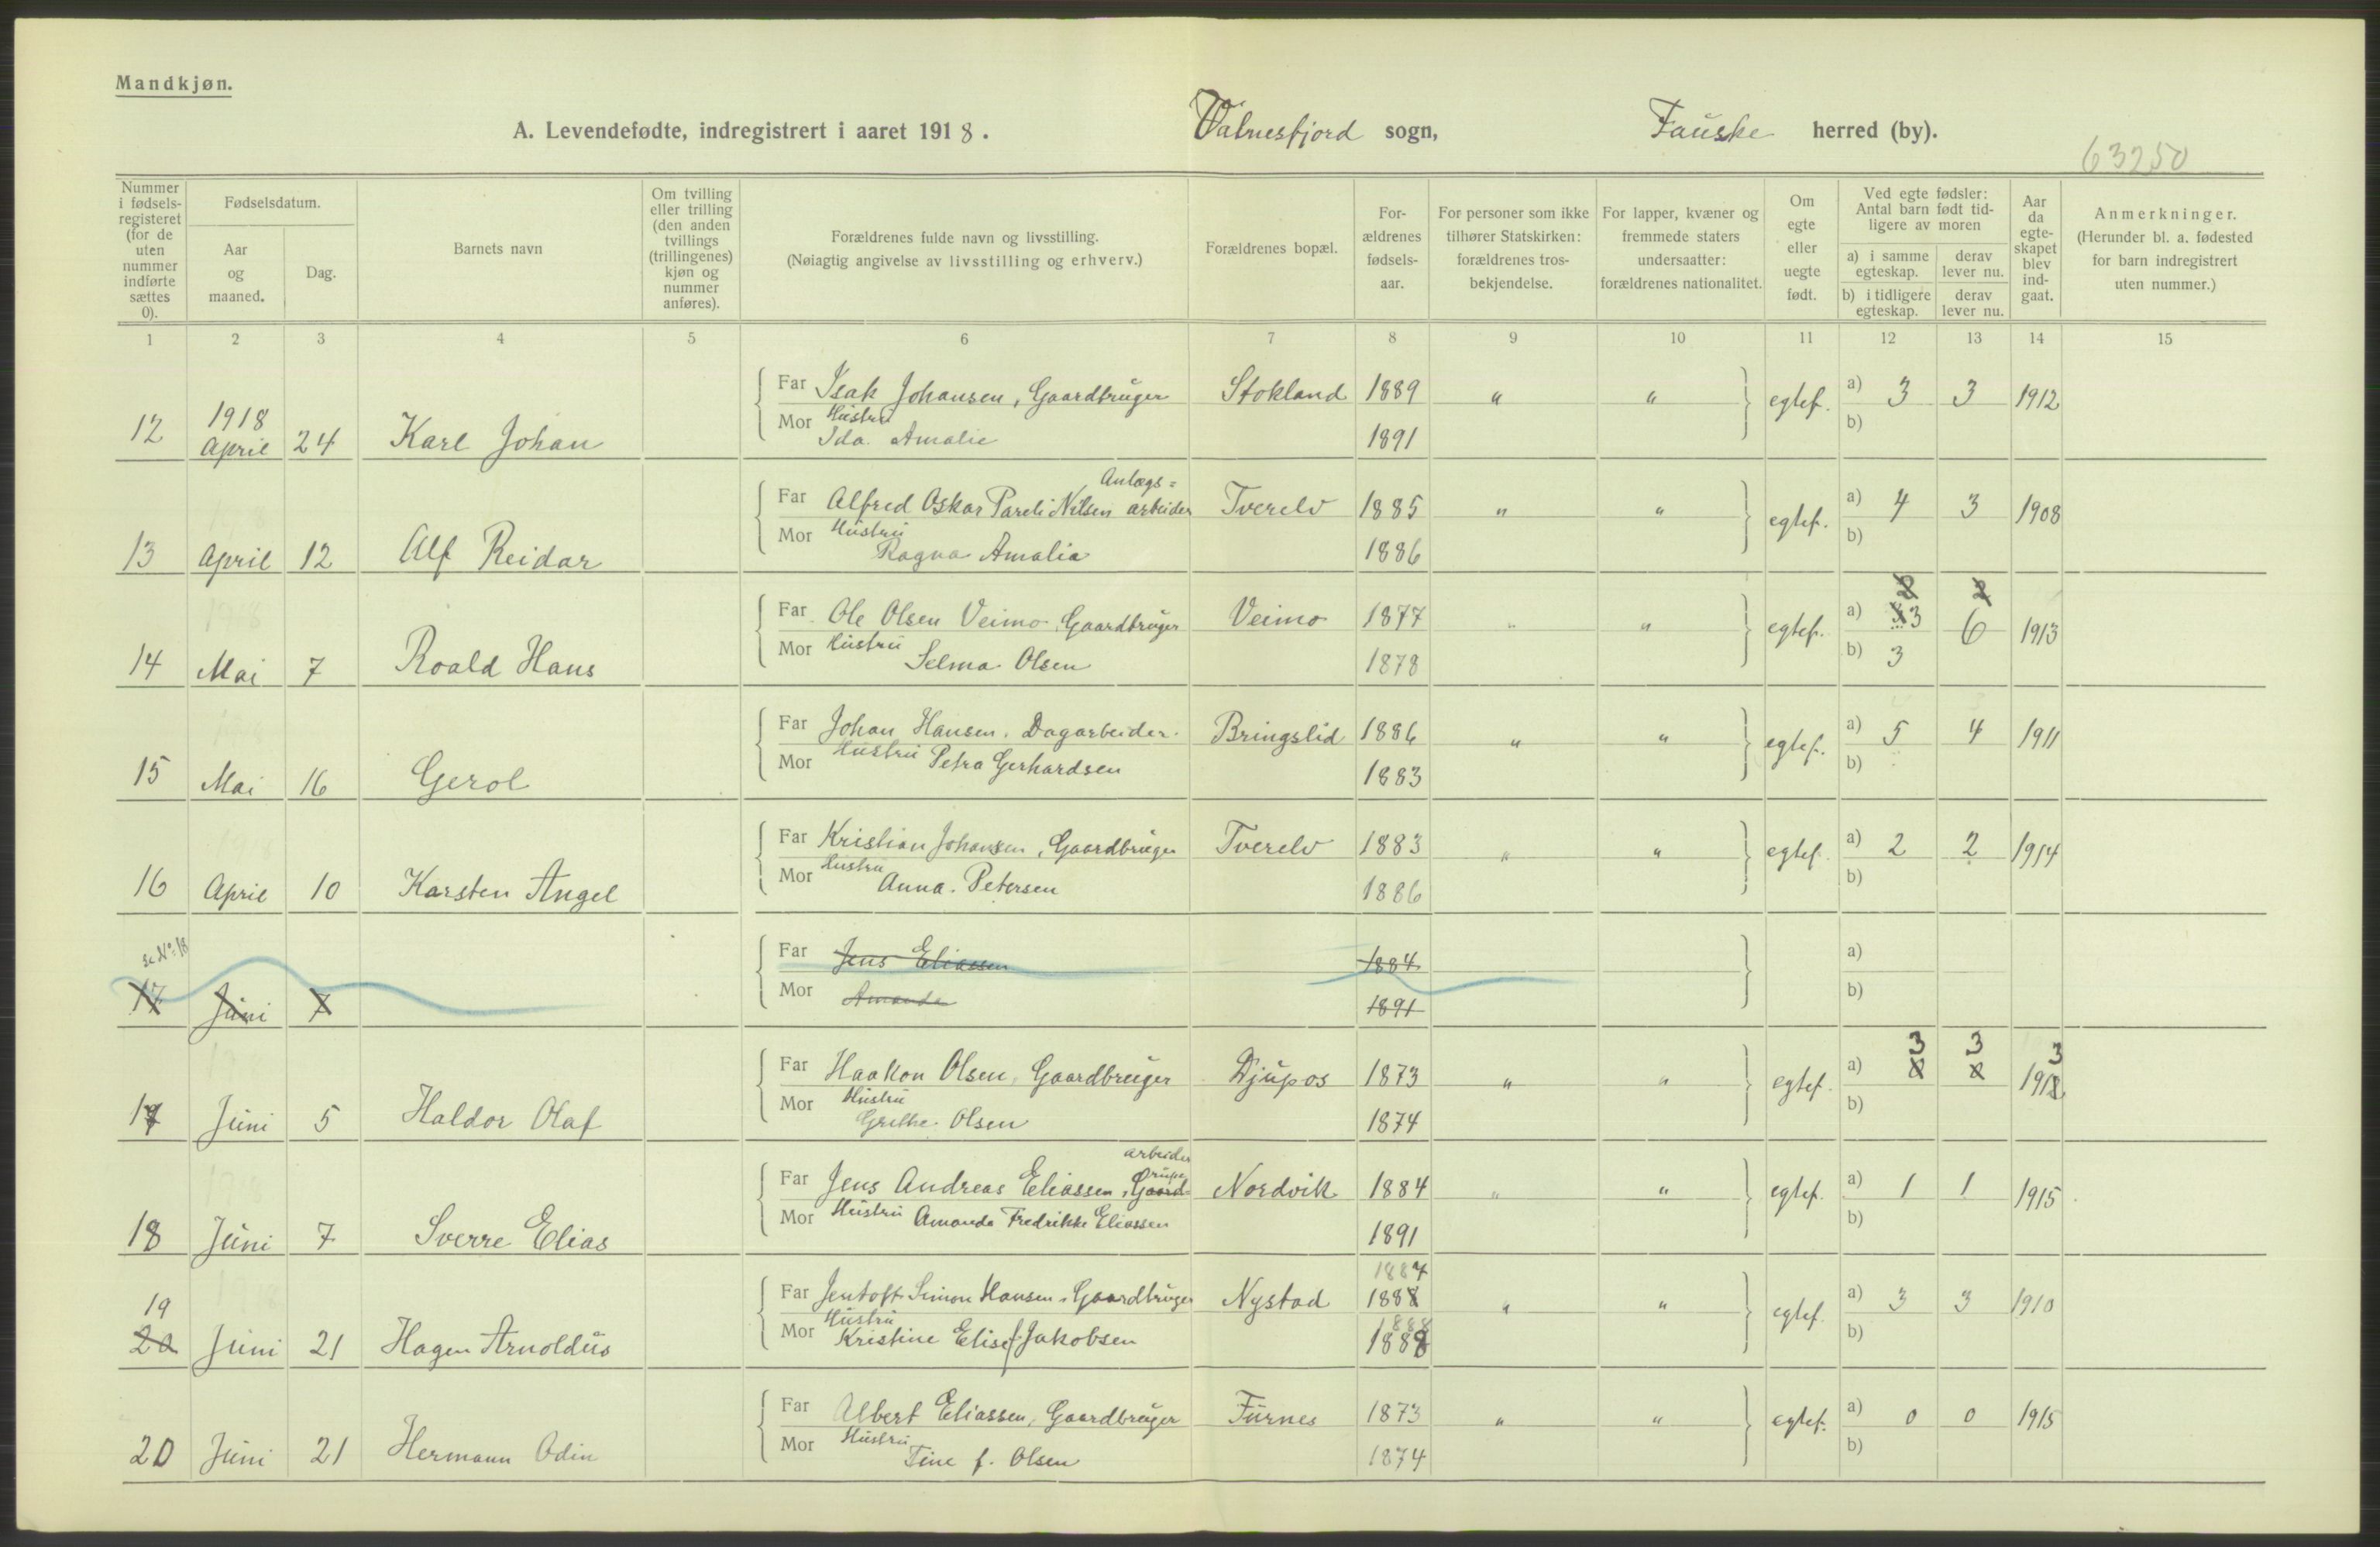 Mandkjøn.
A. Levendefødte, indregistrert i aaret 1918. Valnesfjord sogn, Fauske herred (by).
63250
Nummer i fødselsregisteret (for de uten nummer indførte sættes 0).
Fødselsdatum.
Aar og maaned.
Dag.
Barnets navn
Om tvilling eller trilling (den anden tvillings (trillingenes) kjøn og nummer anføres).
Forældrenes fulde navn og livsstilling.
(Nøiagtig angivelse av livsstilling og erhverv.)
Forældrenes bopæl.
Forældrenes fødselsaar.
For personer som ikke tilhører Statskirken: forældrenes trosbekjendelse.
For lapper, kvæner og fremmede staters undersaatter: forældrenes nationalitet.
Om egte eller uegte født.
Ved egte fødsler: Antal barn født tidligere av moren
a) i samme egteskap.
derav lever nu.
b) i tidligere egteskap.
derav lever nu.
Aar da egteskapet blev indgaat.
Anmerkninger.
(Herunder bl. a. fødested for barn indregistrert uten nummer.)
1 2 3 4 5 6 7 8 9 10 11 12 13 14 15
12 1918 April 24 Karl Johan
Far Isak Johansen, Gaardbruger Stokland 1889 " " egtef. a) 3 3 1912
Mor Hustru Ida Amalie 1891 b)
13 April 12 Alf Reidar
Far Alfred Oskar Pareli Nilsen Anlægs= arbeider Tverelv 1885 " " egtef. a) 4 3 1908
Mor Hustru Ragna Amalia 1886 b)
14 Mai 7 Roald Hans
Far Ole Olsen Veimo Gaardbruger Veimo 1877 " " egtef. a) 3 6 1913
Mor Hustru Selma Olsen 1878 b) 3
15 Mai 16 Gerol
Far Johan Hansen. Dagarbeider. Bringslid 1886 " " egtef. a) 5 4 1911
Mor Hustru Petra Gerhardsen 1883 b)
16 April 10 Karsten Angel
Far Kristian Johansen, Gaardbruger Tverelv 1883 " " egtef. a) 2 2 1914
Mor Hustru Anna Petersen 1886 b)
se No 18
17 Juni 7
Far Jens Eliassen 1884 a)
Mor Amanda 1891 b)
17 Juni 5 Haldor Olaf
Far Haakon Olsen, Gaardbruger Djupos 1873 " " egtef. a) 3 3 1913
Mor Hustru Grethe Olsen 1874 b)
18 Juni 7 Sverre Elias
Far Jens Andreas Eliassen, Gaard= arbeider Nordvik 1884 " " egtef. a) 1 1 1915
Mor Hustru Amanda Fredrikke Eliassen 1891 b)
19 20 Juni 21 Hagen Arnoldus
Far Jentoft Simon Hansen, Gaardbruger Nystad 1884 1888 " " egtef. a) 3 3 1910
Mor Hustru Kristine Elise f. Jakobsen 1888 1888 b)
20 Juni 21 Hermann Odin
Far Albert Eliassen, Gaardbruger Furnes 1873 " " egtef. a) 0 0 1915
Mor Hustru Tine f. Olsen 1874 b)